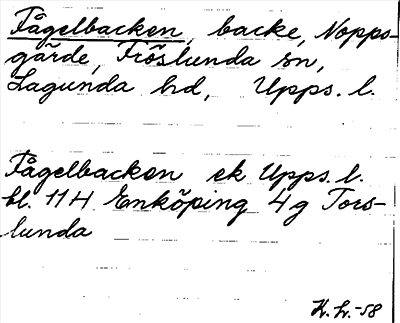 Fågelbacken, backe, Nopps-
gärde, Fröslunda sn,
Lagunda hd, Upps. l.
Fågelbacken ek Upps. l.
bl. 11H Enköping 4g Tors-
lunda
H. L. -58